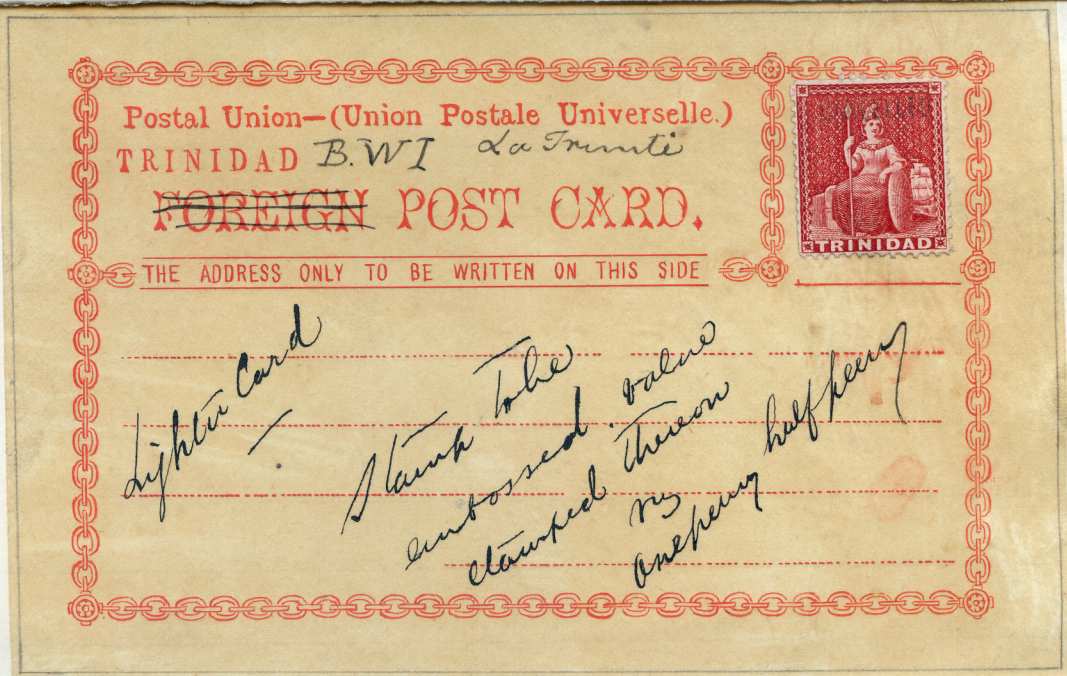 Postal Union—(Union Postale Universelle.)
TRINIDAD B.W I La Trinité
FOREIGN POST CARD.
THE ADDRESS ONLY TO BE WRITTEN ON THIS SIDE
TRINIDAD
Lighter Card
Stamp to be
embossed value
stamped thereon
viz
onepenny halfpenny